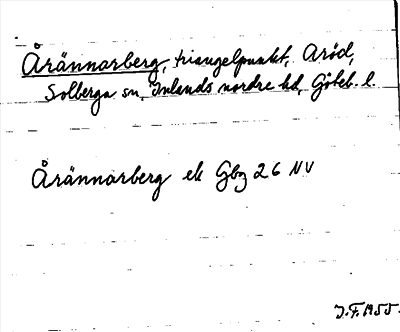 Årännarberg, triangelpunkt, Aröd,
Solberga sn, Inlands nordre hd, Göteb. l.
Årännarberg ek Gbg 26 NV
J.F. 1955.